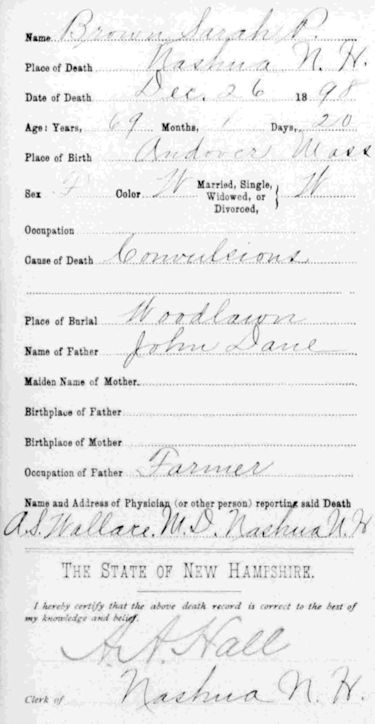 Name Brown Sarah P.
Place of Death Nashua N. H.
Date of Death Dec. 26 1898
Age: Years, 69 Months, 1 Days, 20
Place of Birth Andover Mass
Sex F Color W Married, Single, Widowed, or Divorced, } W
Occupation
Cause of Death Convulsions
Place of Burial Woodlawn
Name of Father John Dane
Maiden Name of Mother
Birthplace of Father
Birthplace of Mother
Occupation of Father Farmer
Name and Address of Physician (or other person) reporting said Death
A. S. Wallace. M. D. Nashua N. H
THE STATE OF NEW HAMPSHIRE.
I hereby certify that the above death record is correct to the best of
my knowledge and belief.
A. A. Hall
Clerk of Nashua N. H.